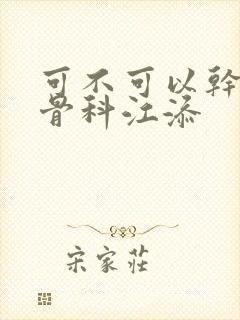 可不可以幹
骨科江添
宋家莊